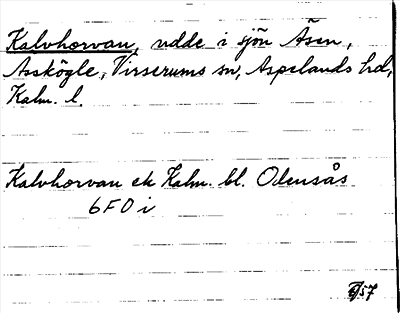 Kalvhorvan, udde i sjön Åsen,
Asskögle, Virserums sn, Aspelands hd,
Kalm. l.
Kalvhorvan ek Kalm. bl. Odensås
6F0i
57